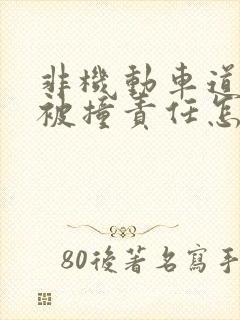 非機動車道
被撞責任怎
80後著名寫手